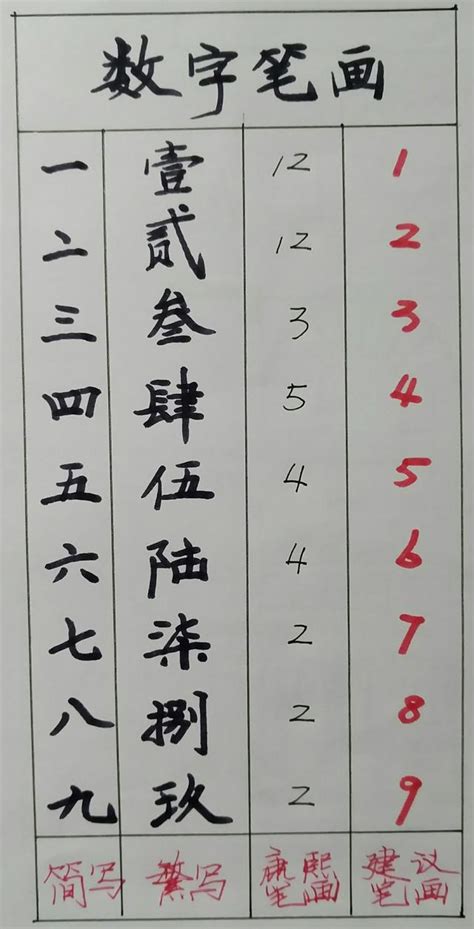 数字笔画
一 壹 12 1
二 贰 12 2
三 叁 3 3
四 肆 5 4
五 伍 4 5
六 陆 4 6
七 柒 2 7
八 捌 2 8
九 玖 2 9
简写 繁写 康熙笔画 建议笔画